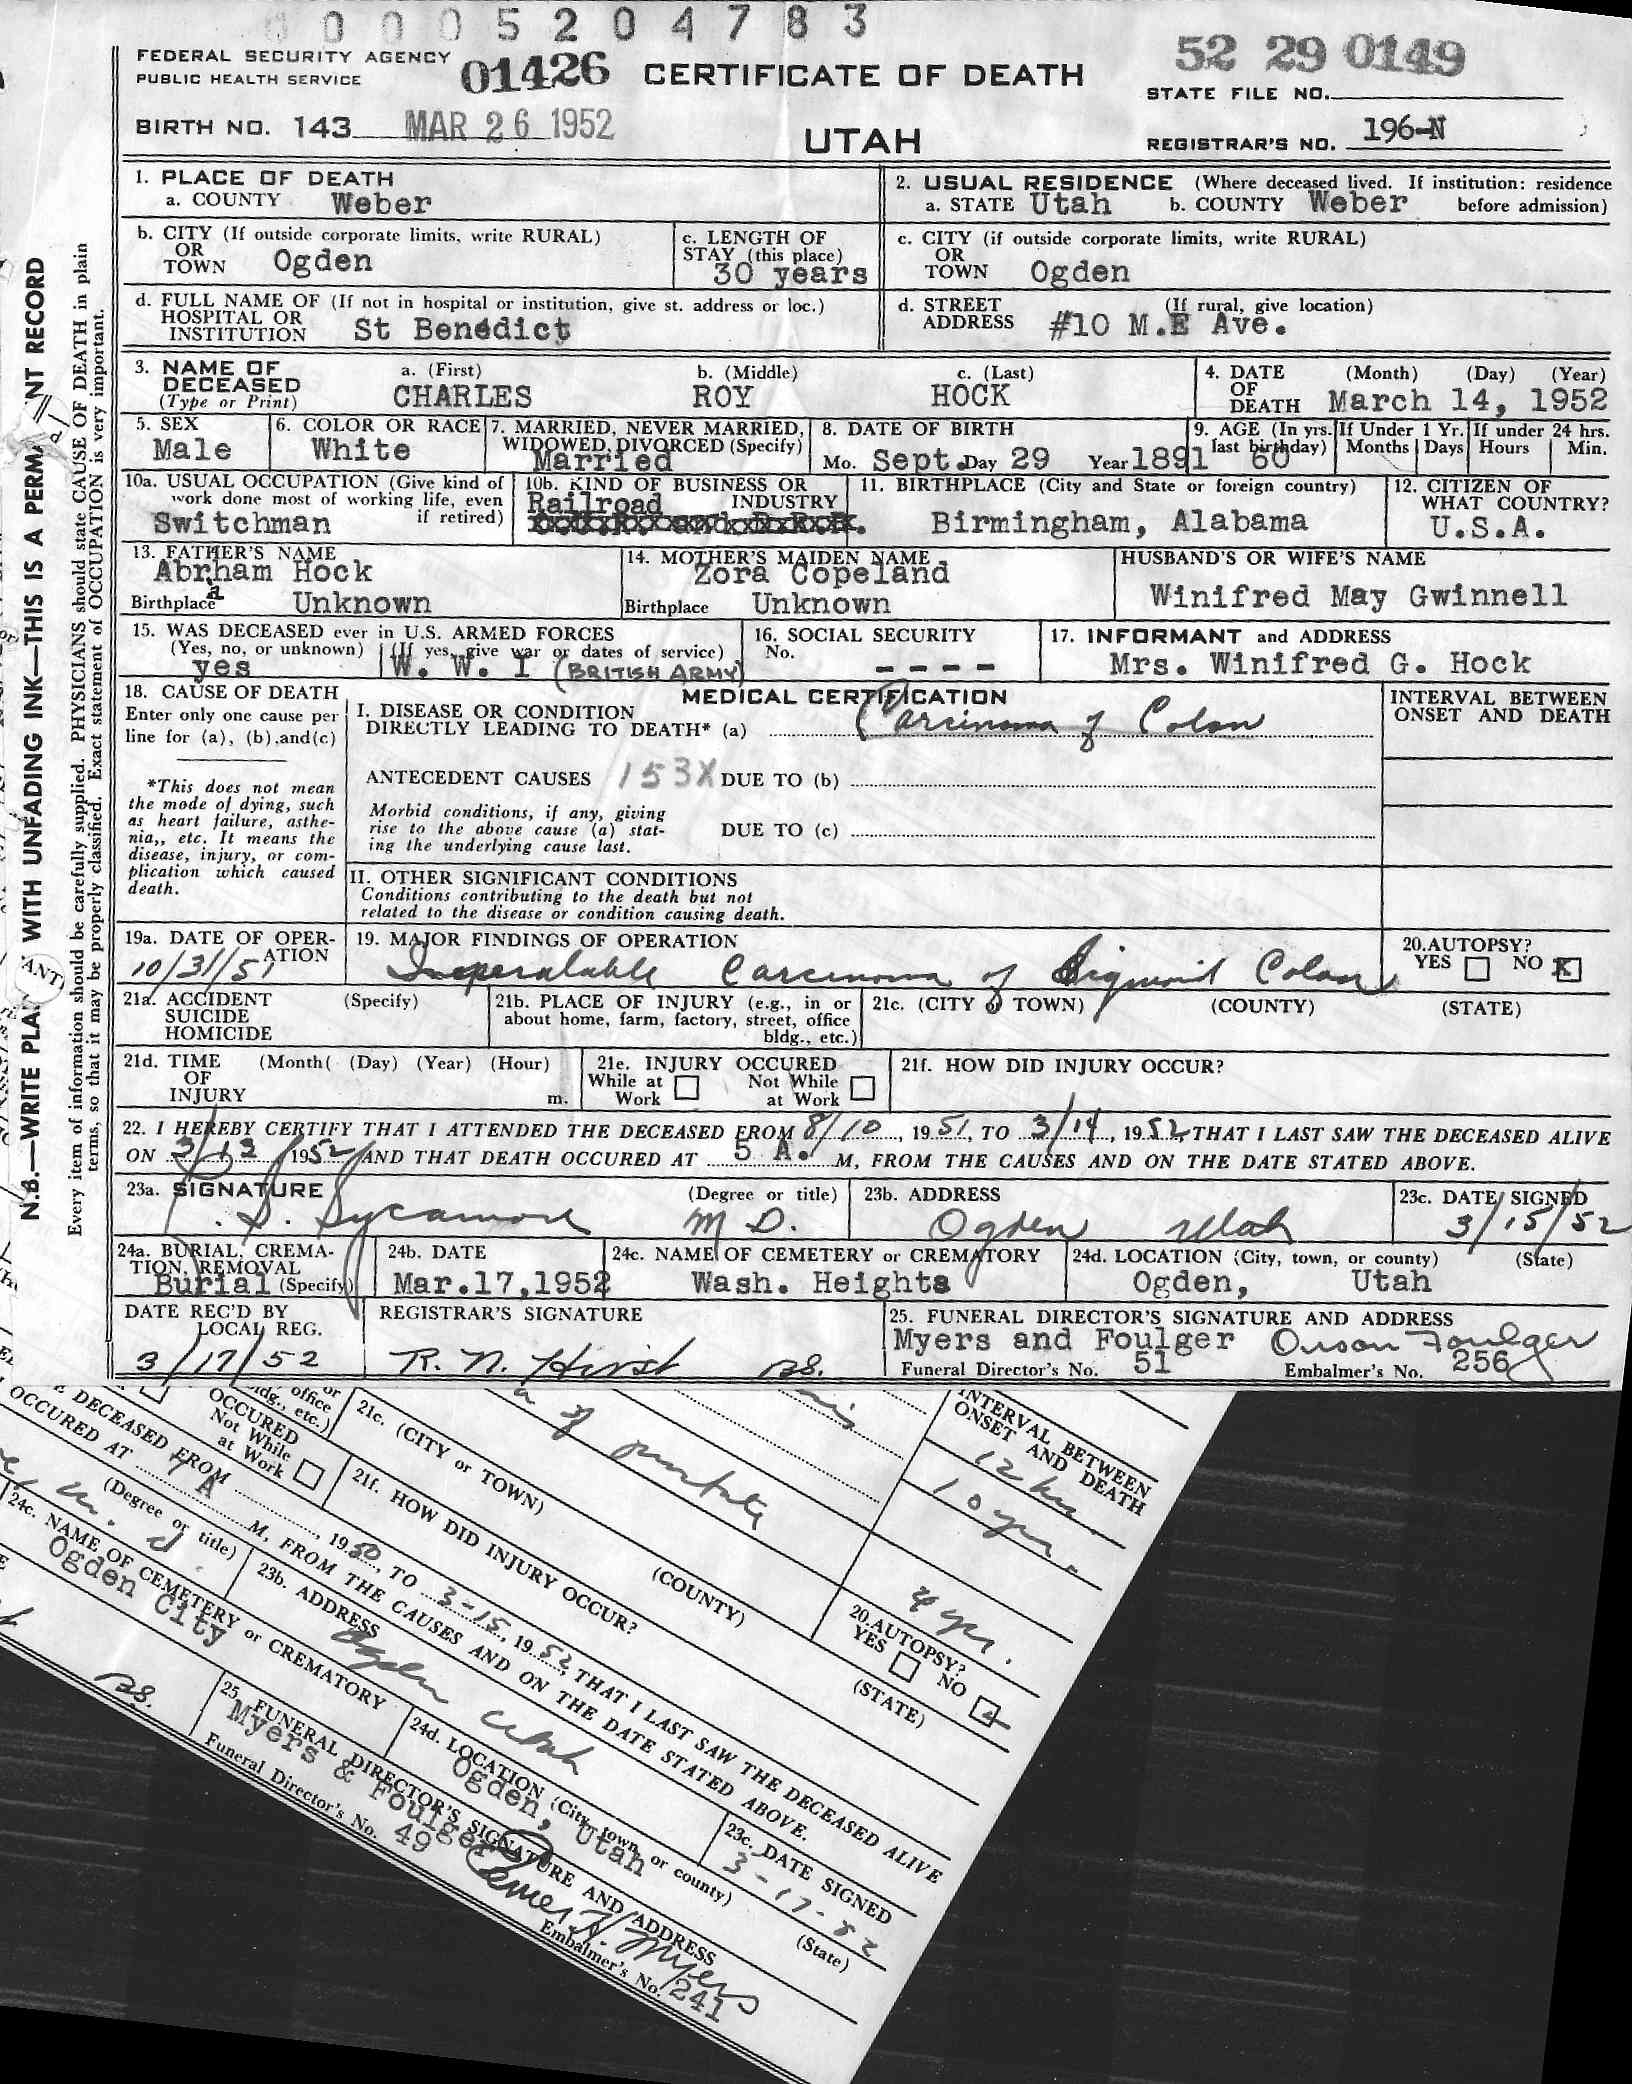 0 0 0 0 5 2 0 4 7 8 3
FEDERAL SECURITY AGENCY
PUBLIC HEALTH SERVICE
01426
CERTIFICATE OF DEATH
52 29 0149
STATE FILE NO.
BIRTH NO. 143 MAR 26 1952
UTAH
REGISTRAR'S NO. 196-N
1. PLACE OF DEATH
a. COUNTY Weber
2. USUAL RESIDENCE (Where deceased lived. If institution: residence
a. STATE Utah b. COUNTY Weber before admission)
b. CITY (If outside corporate limits, write RURAL)
OR
TOWN Ogden
c. LENGTH OF
STAY (this place)
30 years
c. CITY (if outside corporate limits, write RURAL)
OR
TOWN Ogden
d. FULL NAME OF (If not in hospital or institution, give st. address or loc.)
HOSPITAL OR
INSTITUTION St Benedict
d. STREET (If rural, give location)
ADDRESS #10 M.E Ave.
3. NAME OF
DECEASED
(Type or Print)
a. (First) b. (Middle) c. (Last)
CHARLES ROY HOCK
4. DATE (Month) (Day) (Year)
OF
DEATH March 14, 1952
5. SEX
Male
6. COLOR OR RACE
White
7. MARRIED, NEVER MARRIED,
WIDOWED, DIVORCED (Specify)
Married
8. DATE OF BIRTH
Mo. Sept. Day 29 Year 1891
9. AGE (In yrs.
last birthday) 60
If Under 1 Yr.
Months Days
If under 24 hrs.
Hours Min.
10a. USUAL OCCUPATION (Give kind of
work done most of working life, even
if retired)
Switchman
10b. KIND OF BUSINESS OR
Railroad INDUSTRY
11. BIRTHPLACE (City and State or foreign country)
Birmingham, Alabama
12. CITIZEN OF
WHAT COUNTRY?
U.S.A.
13. FATHER'S NAME
Abrham Hock
a
Birthplace Unknown
14. MOTHER'S MAIDEN NAME
Zora Copeland
Birthplace Unknown
HUSBAND'S OR WIFE'S NAME
Winifred May Gwinnell
15. WAS DECEASED ever in U.S. ARMED FORCES
(Yes, no, or unknown) (If yes, give war or dates of service)
yes W. W. I (BRITISH ARMY)
16. SOCIAL SECURITY
No.
- - - -
17. INFORMANT and ADDRESS
Mrs. Winifred G. Hock
18. CAUSE OF DEATH
Enter only one cause per
line for (a), (b), and (c)
*This does not mean
the mode of dying, such
as heart failure, asthe-
nia,, etc. It means the
disease, injury, or com-
plication which caused
death.
MEDICAL CERTIFICATION
I. DISEASE OR CONDITION
DIRECTLY LEADING TO DEATH* (a) Carcinoma of Colon
ANTECEDENT CAUSES 153X DUE TO (b)
Morbid conditions, if any, giving
rise to the above cause (a) stat-
ing the underlying cause last.
DUE TO (c)
II. OTHER SIGNIFICANT CONDITIONS
Conditions contributing to the death but not
related to the disease or condition causing death.
INTERVAL BETWEEN
ONSET AND DEATH
19a. DATE OF OPER-
ATION
10/31/51
19. MAJOR FINDINGS OF OPERATION
Inoperable Carcinoma of Sigmoid Colon
20. AUTOPSY?
YES NO X
21a. ACCIDENT (Specify)
SUICIDE
HOMICIDE
21b. PLACE OF INJURY (e.g., in or
about home, farm, factory, street, office
bldg., etc.)
21c. (CITY or TOWN) (COUNTY) (STATE)
21d. TIME (Month( (Day) (Year) (Hour)
OF
INJURY m.
21e. INJURY OCCURED
While at Work Not While at Work
21f. HOW DID INJURY OCCUR?
22. I HEREBY CERTIFY THAT I ATTENDED THE DECEASED FROM 8/10, 1951, TO 3/14, 1952, THAT I LAST SAW THE DECEASED ALIVE
ON 3/13/1952 AND THAT DEATH OCCURED AT 5 A. M, FROM THE CAUSES AND ON THE DATE STATED ABOVE.
23a. SIGNATURE (Degree or title)
S. Sycamore M D.
23b. ADDRESS
Ogden Utah
23c. DATE SIGNED
3/15/52
24a. BURIAL, CREMA-
TION, REMOVAL
Burial (Specify)
24b. DATE
Mar.17,1952
24c. NAME OF CEMETERY or CREMATORY
Wash. Heights
24d. LOCATION (City, town, or county) (State)
Ogden, Utah
DATE REC'D BY
LOCAL REG.
3/17/52
REGISTRAR'S SIGNATURE
R. N. Hirst BS.
25. FUNERAL DIRECTOR'S SIGNATURE AND ADDRESS
Myers and Foulger Orson Foulger
Funeral Director's No. 51 Embalmer's No. 256
N.B.—WRITE PLA WITH UNFADING INK—THIS IS A PERMA NT RECORD
Every item of information should be carefully supplied. PHYSICIANS should state CAUSE OF DEATH in plain
terms, so that it may be properly classified. Exact statement of OCCUPATION is very important.
office
bldg., etc.)
OCCURED
Not While
at Work
21c. (CITY or TOWN) (COUNTY) (STATE)
21f. HOW DID INJURY OCCUR?
a of prostate
INTERVAL BETWEEN
ONSET AND DEATH
12 hrs.
10 yrs.
4 yrs.
20. AUTOPSY?
YES NO
DECEASED FROM , 1950, TO 3-15, 1952, THAT I LAST SAW THE DECEASED ALIVE
OCCURED AT A M, FROM THE CAUSES AND ON THE DATE STATED ABOVE.
(Degree or title)
m. d.
23b. ADDRESS
Ogden Utah
23c. DATE SIGNED
3-17-52
24c. NAME OF CEMETERY or CREMATORY
Ogden City
24d. LOCATION (City, town, or county) (State)
Ogden, Utah
BS.
25. FUNERAL DIRECTOR'S SIGNATURE AND ADDRESS
Myers & Foulger
Myers
Funeral Director's No. 49 Embalmer's No. 241